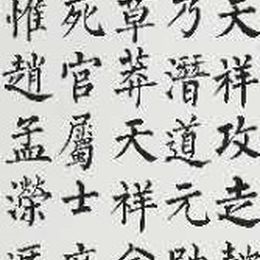 天祥攻走
乃潛道元
草莽天祥
死官屬士
惟趙孟濚